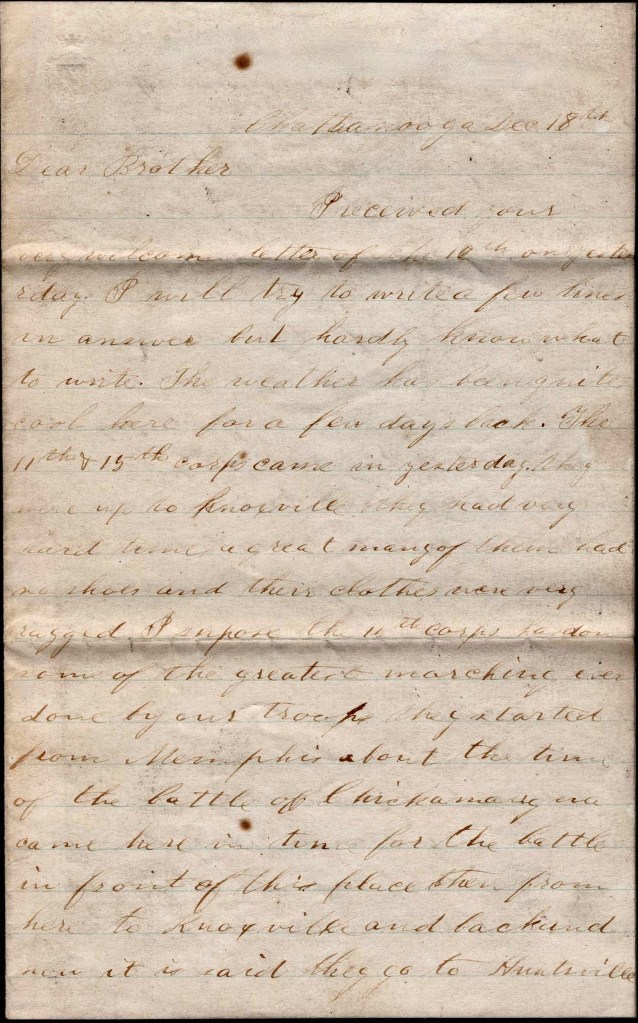 Chattanooga Dec 18th
Dear Brother
I received your
very welcome letter of the 10th on yeste
rday. I will try to write a few lines
in answer but hardly know what
to write. The weather has been quite
cool here for a few days back. The
11th & 15th corps came in yesterday. they
were up to Knoxville they had very
hard time a great many of them had
no shoes and their clothes were very
ragged. I supose the corps has done
some of the greatest marching ever
done by our troops they started
from Memphis about the time
of the battle of Chickamauga
came here in time for the battle
in front of this place then from
here to Knoxville and back and
now it is said they go to Huntsville